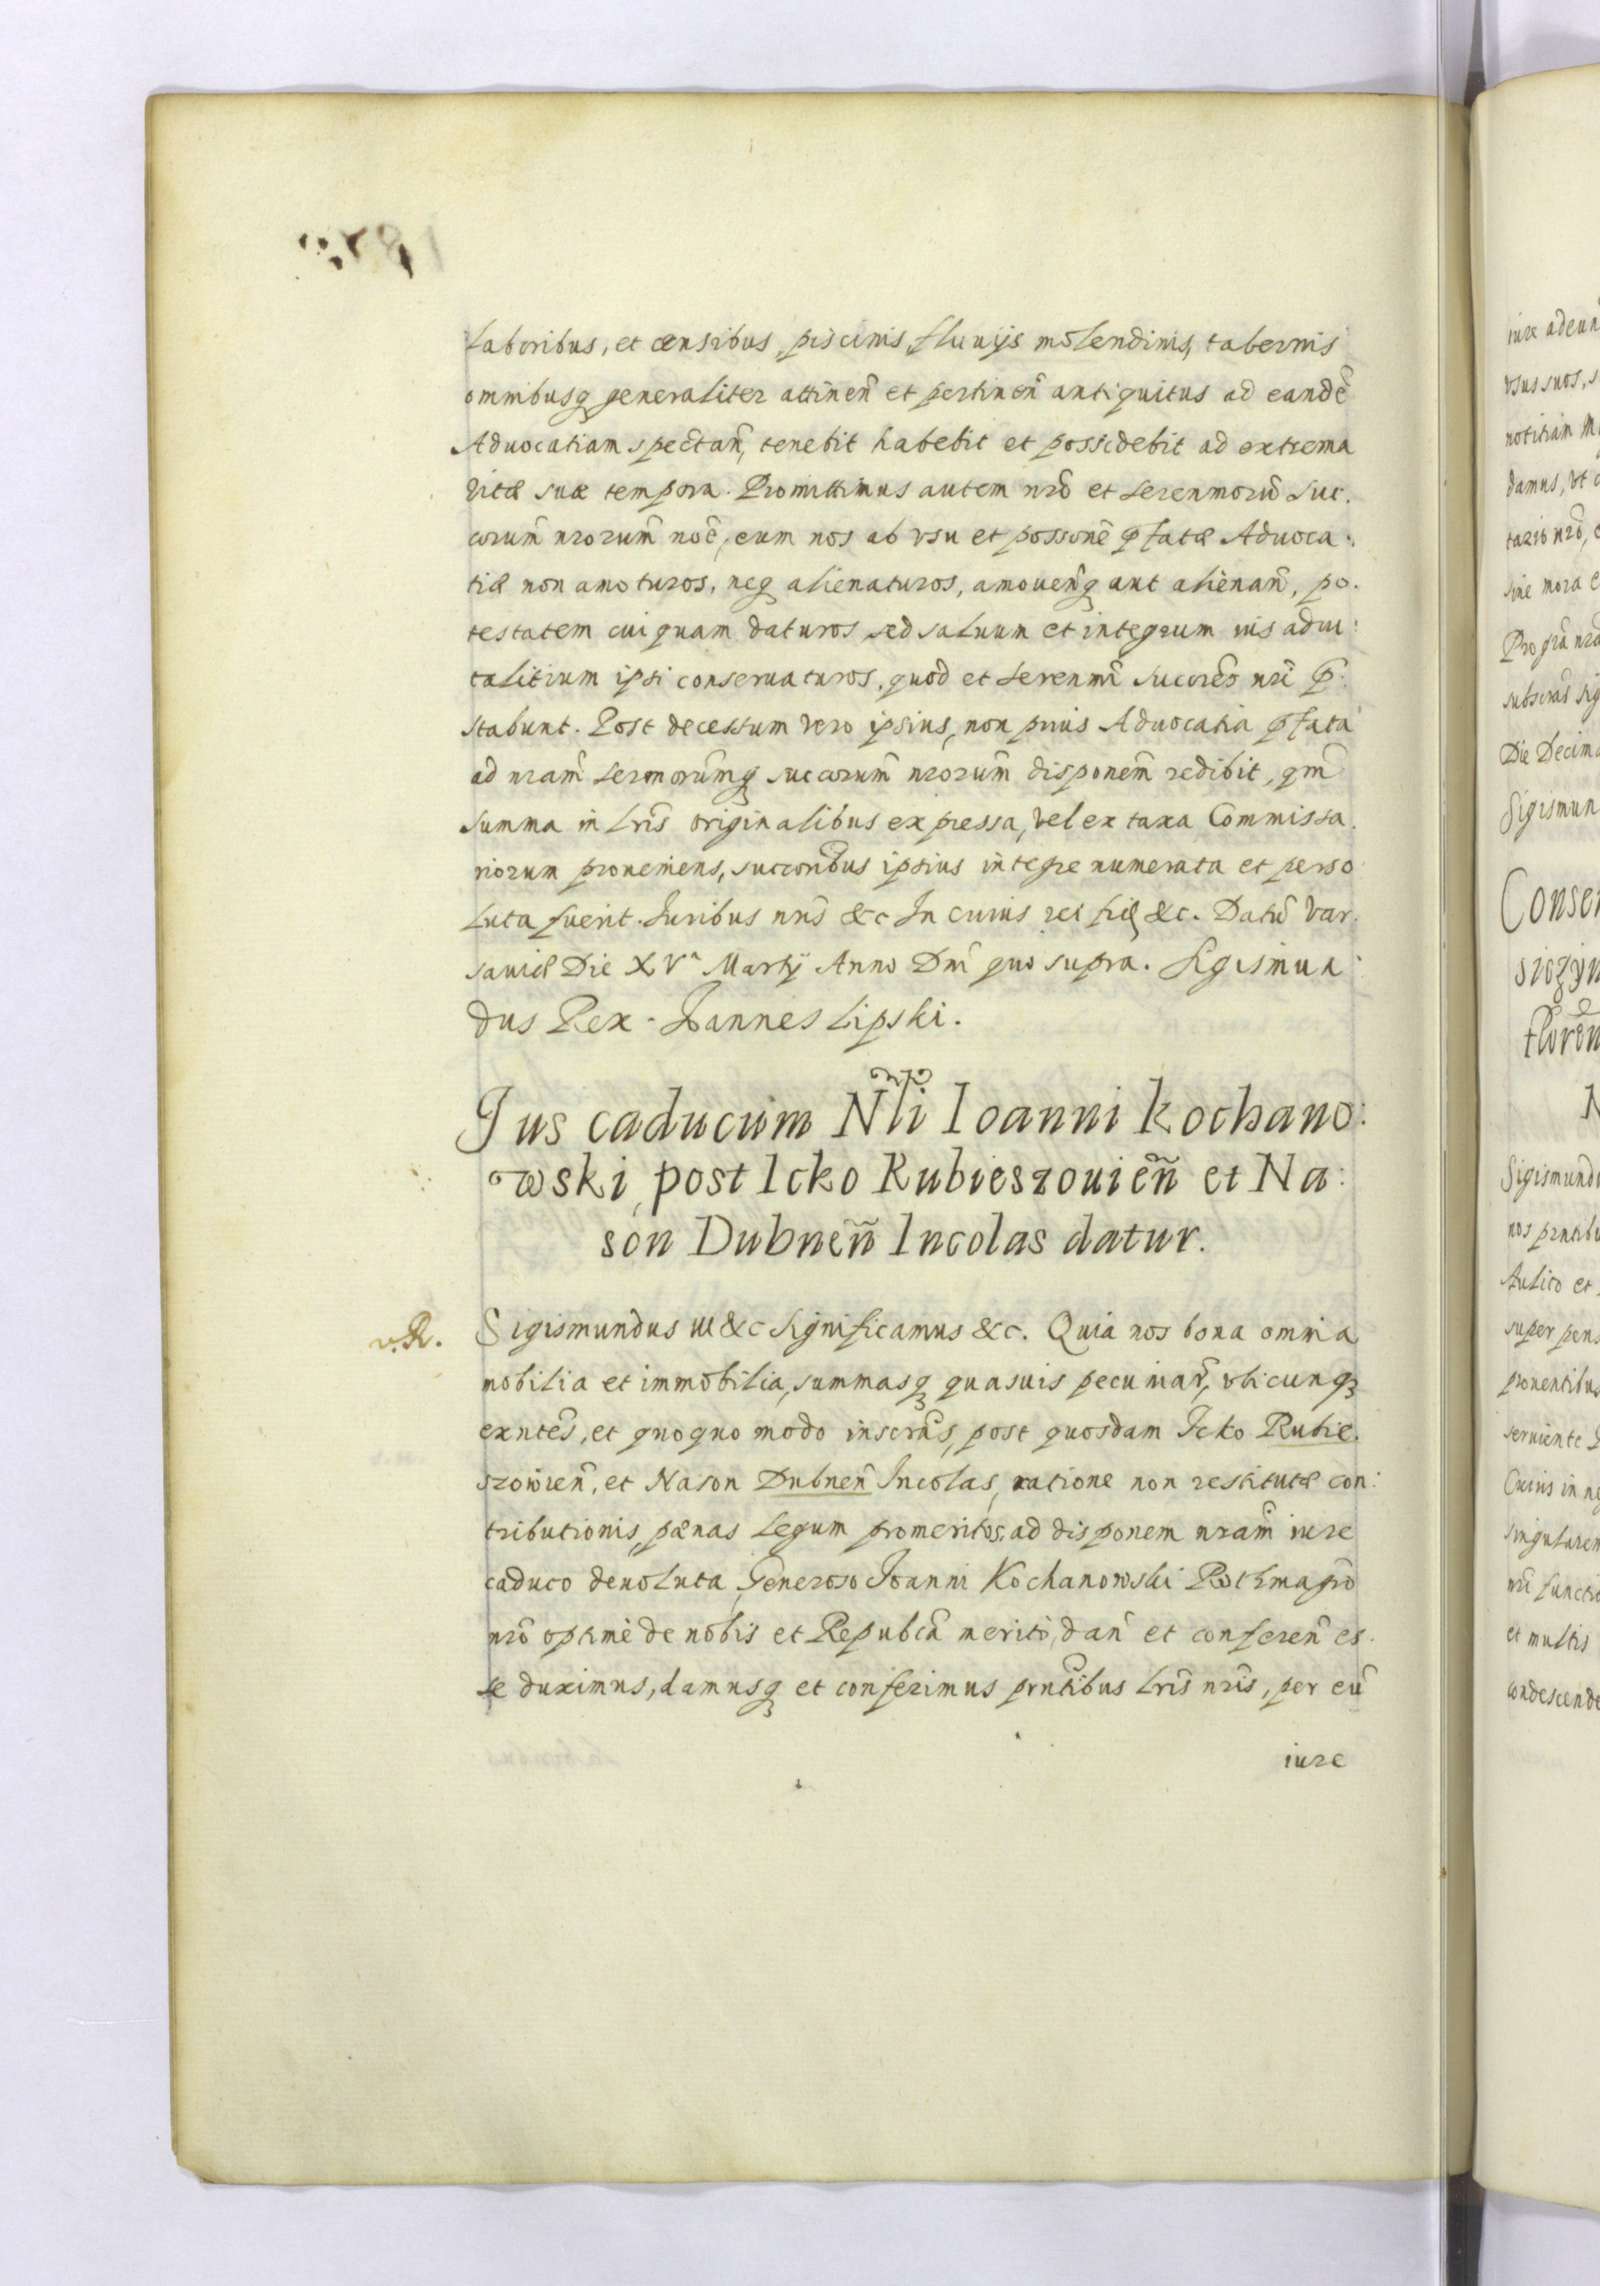 laboribus, et censibus, piscinis, fluvijs molendinis, tabernis
omnibusq generaliter attineñ et pertineñ antiquitus ad eandē
Advocatiam spectañ, tenebit habebit et possidebit ad extrema
vitæ suæ tempora. Promittimus autem nrō et serenmorū suc.
corum̄ nrorum̄ noē, eum nos ab vsu et possonē pfatæ Advoca:
tiæ non amoturos, neq alienaturos, amoueñq aut alienañ, po.
testatem cuiquam daturos sed saluum et integrum ius advi:
talitium ipsi conseruaturos, quod et serenmī succorēs nrī p̄:
stabunt. Post decessum vero ipsius, non prius Advocatia pfata
ad nram̄ sermorum̄q succorum̄ nrorum̄ disponem̄ redibit, qm̄
summa in lrīs originalibus expressa, vel ex taxa Commissa.
riorum proueniens, succoribus ipsius integre numerata et perso
luta fuerit. Juribus nrīs &c In cuius rei fiḡ &c. Datū Var.
saviæ Die XVª Martij Anno Dnī quo supra. Sigismun:
dus Rex. Joannes Lipski.
Jus caducum Nlī Ioanni Kochano:
wski, post Icko Rubieszouieñ et Na:
son Dubneñ Incolas datur.
v. R.
Sigismundus III &c Significamus &c. Quia nos bona omnia
mobilia et immobilia, summasq quasuis pecuniar̄, vbicunq
exntēs, et quoquo modo inscrās, post quosdam Icko Rubie.
szowieñ, et Nason Dubneñ Incolas, ratione non restitutæ con:
tributionis, pœnas legum promeritos, ad disponem nram̄ iure
caduco deuoluta, Generoso Joanni Kochanowski Rothmagrō
nrō optimè de nobis et Repubcā meritò, dañ et confereñ es.
se duximus, damusq et conferimus prntībus lrīs nrīs, per eū
iure